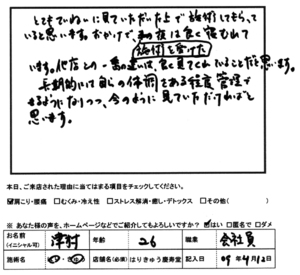 とてもていねいに見ていただいた上で施術してもらって
いると思います。おかげで、その夜は良く寝むれて
施術を受けた
います。他店との一番の違いは、良く見てくれていることだと思います。
長期的には自らの体調をある程度管理で
きるようになりつつ、今のように見ていただければと
思います。
本日、ご来店された理由に当てはまる項目をチェックしてください。
☑肩こり・腰痛 □むくみ・冷え性 □ストレス解消・癒し・デトックス □その他( )
※ あなた様の声を、ホームページなどでご紹介してもよろしいですか? ☑はい □匿名で □ダメ
お名前 (イニシャル可) 津村 年齢 26 職業 会社員
施術名 店舗名(必須) はりきゅう慶寿堂 記入日 09年4月12日